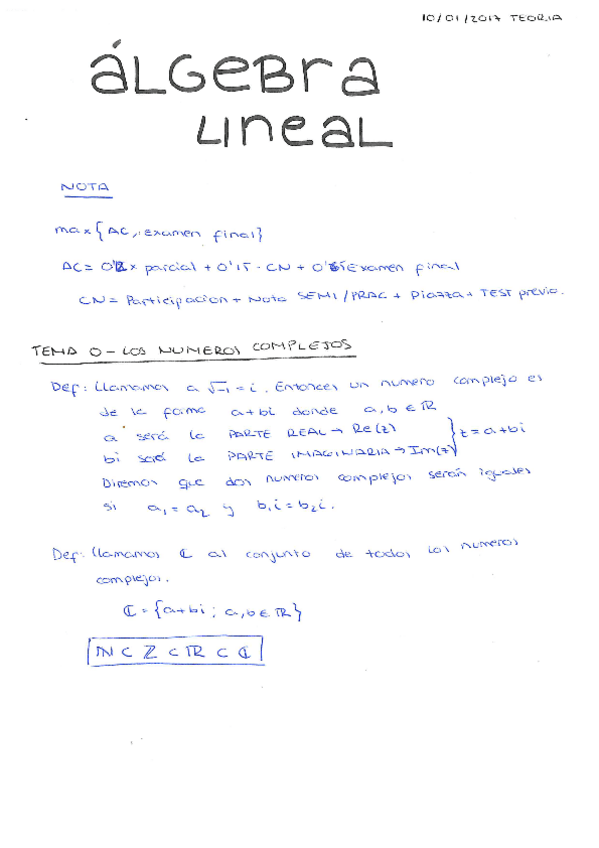 10/01/2017 TEORIA
ÁLGEBRA
LINEAL
NOTA
max{AC, examen final}
AC = 0'2 x parcial + 0'15 · CN + 0'65 Examen final
CN = Participacion + Nota SEMI/PRAC + Piazza + TEST previo.
TEMA 0 - LOS NUMEROS COMPLEJOS
Def: Llamamos a √-1 = i. Entonces un numero complejo es
de la forma a+bi donde a,b ∈ ℝ
a será la PARTE REAL → Re(z)
bi será la PARTE IMAGINARIA → Im(z) } z = a+bi
Diremos que dos numeros complejos serán iguales
si a₁ = a₂ y b₁i = b₂i.
Def: Llamamos ℂ al conjunto de todos los numeros
complejos.
ℂ = {a+bi ; a,b ∈ ℝ}
ℕ ⊂ ℤ ⊂ ℝ ⊂ ℂ